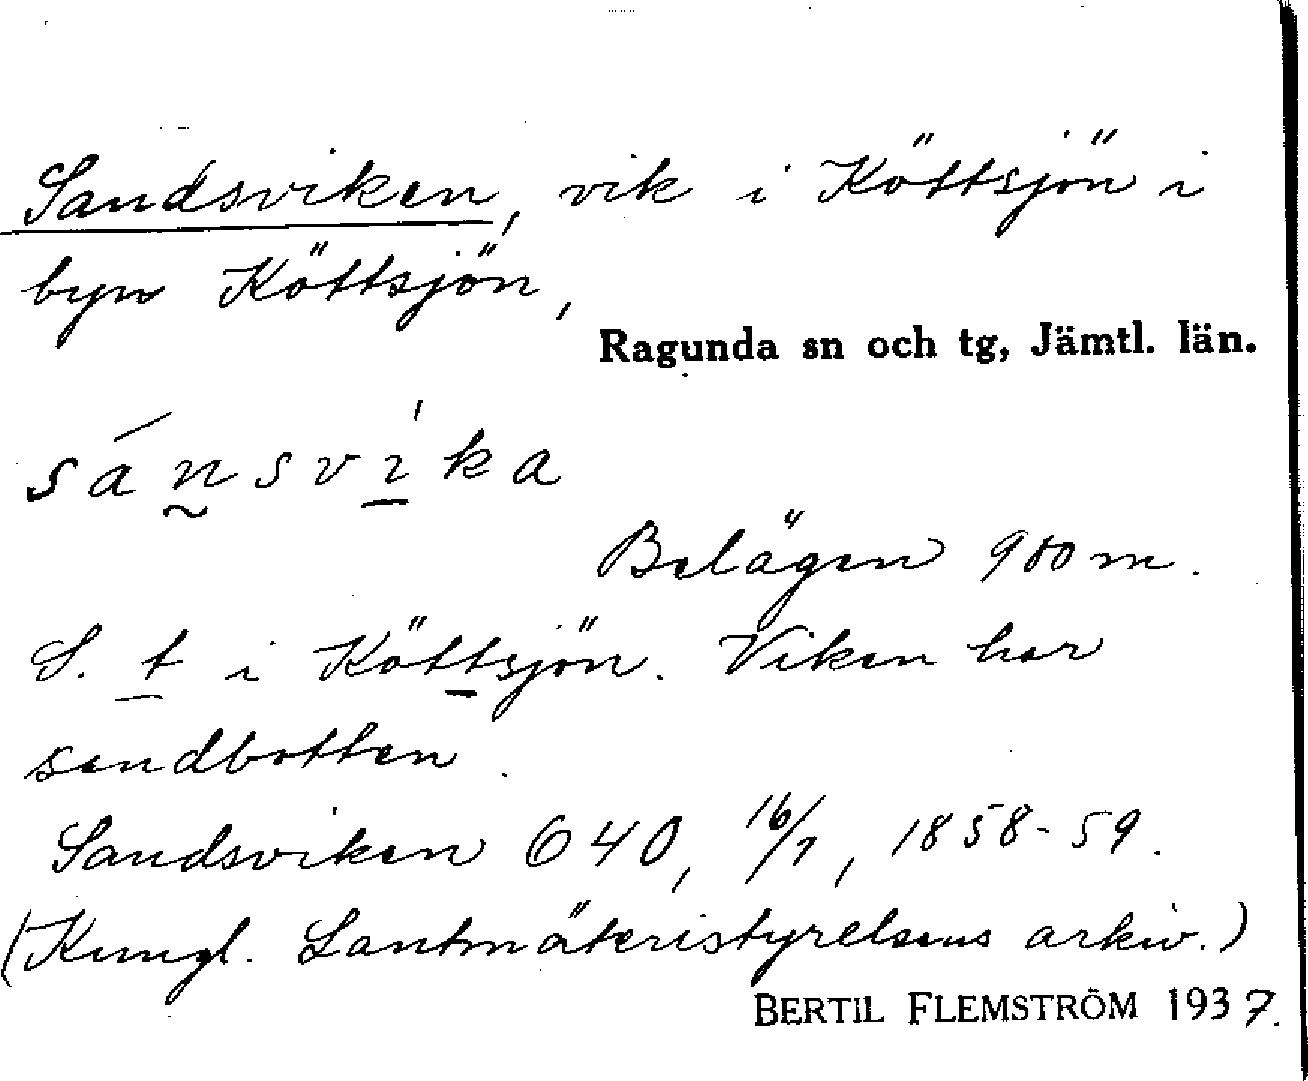 Sandsviken, vik i Köttsjön i
byn Köttsjön,
Ragunda sn och tg, Jämtl. län.
sánsvika
Belägen 900 m.
S. t i Köttsjön. Viken har
sandbotten.
Sandsviken 640, 16/1, 1858-59.
(Kungl. Lantmäteristyrelsens arkiv.)
BERTIL FLEMSTRÖM 1937.